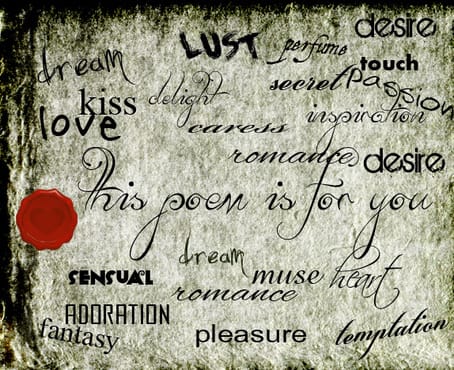 desire
LUST
perfume
dream
touch
secret
Passion
kiss
delight
love
caress
inspiration
romance
desire
This poem is for you
dream
SENSUAL
muse
heart
romance
ADORATION
fantasy
pleasure
temptation